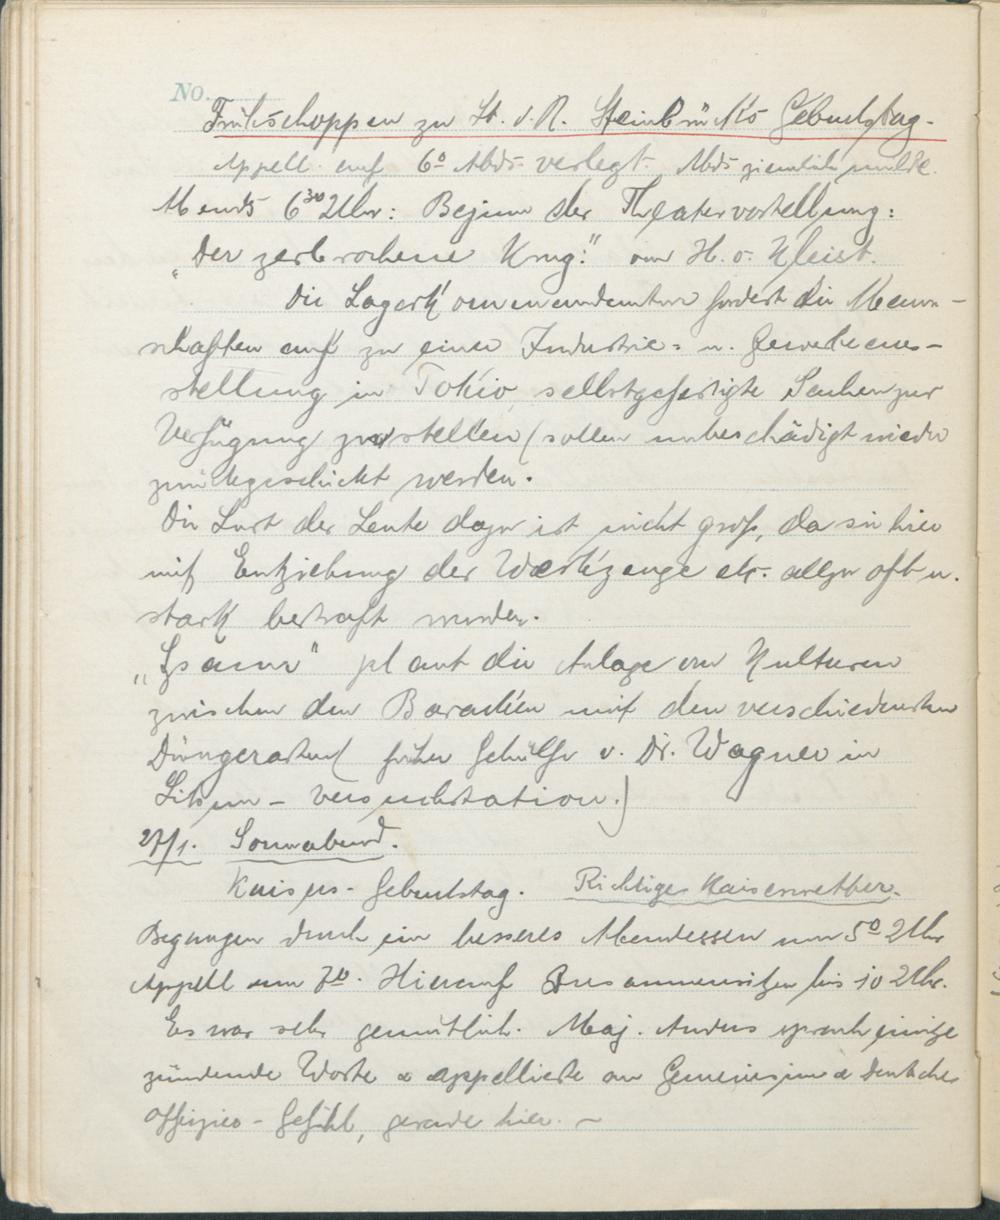 No.
Frühschoppen zu Lt. d. R. Steinbrück's Geburtstag.
Appell auf 6⁰ Abds verlegt. Abds ziemlich milde.
Abends 6³⁰ Uhr: Beginn der Theatervorstellung:
"Der zerbrochene Krug." von H. v. Kleist.
Die Lagerkommandantur fordert die Mann-
schaften auf zu einer Industrie- u. Gewerbeaus-
stellung in Tokio selbstgefertigte Sachen zur
Verfügung zu stellen (sollen unbeschädigt wieder
zurückgeschickt werden.
Die Lust der Leute dazu ist nicht groß, da sie hier
mit Entziehung der Werkzeuge etc. allzu oft u.
stark bestraft wurden.
plant die Anlage von Kulturen
zwischen den Baracken mit den verschiedensten
Düngerarten (früher Gehülfe v. Dr. Wagner in
versuchstation.)
27/1. Sonnabend.
Kaisers-Geburtstag. Richtiges Kaiserwetter.
Begangen durch ein besseres Abendessen um 5⁰ Uhr
Appell um 7⁰⁰. Hierauf Zusammensitzen bis 10 Uhr.
Es war sehr gemütlich. Maj. Anders sprach einige
zündende Worte & appellierte an Gemeinsinn & Deutsches
Offizier-Gefühl, gerade hier. –